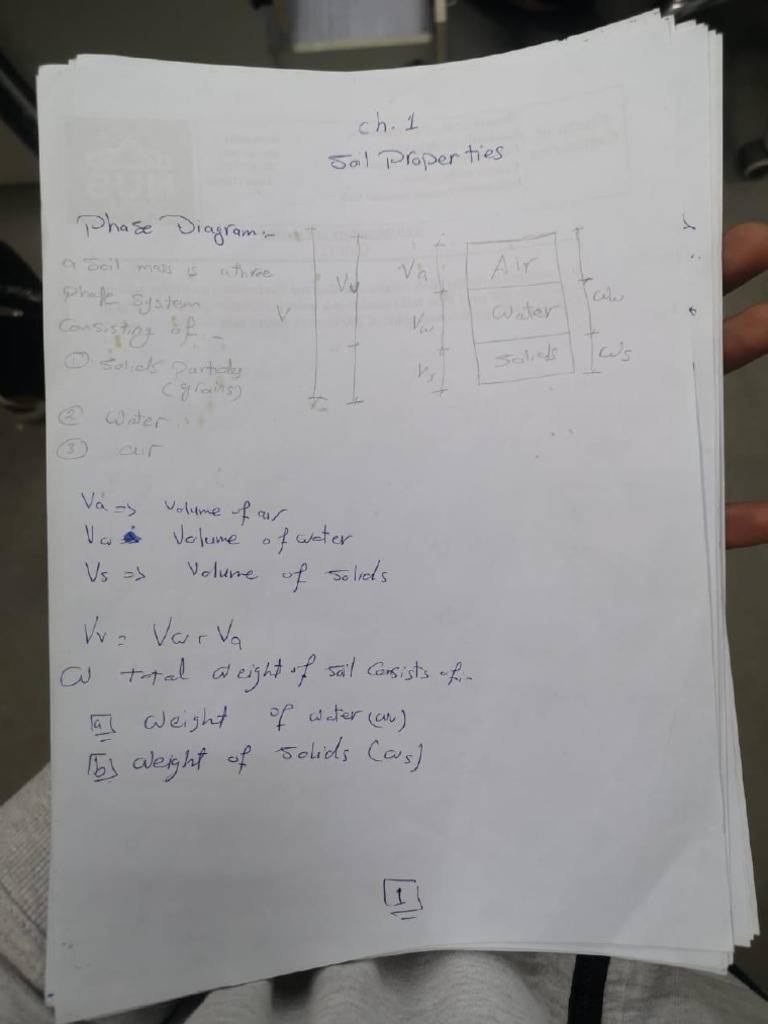 ch. 1
Soil Properties
Phase Diagram:-
a soil mass is a three
phase system
consisting of:-
① solids Particles
(grains)
② water
③ air
V
Vv
Va
Vw
Vs
Air
water
solids
ww
ws
Va => volume of air
Vw Volume of water
Vs => Volume of solids
Vv = Vw + Va
W total weight of soil consists of:-
a weight of water (ww)
b weight of solids (ws)
1